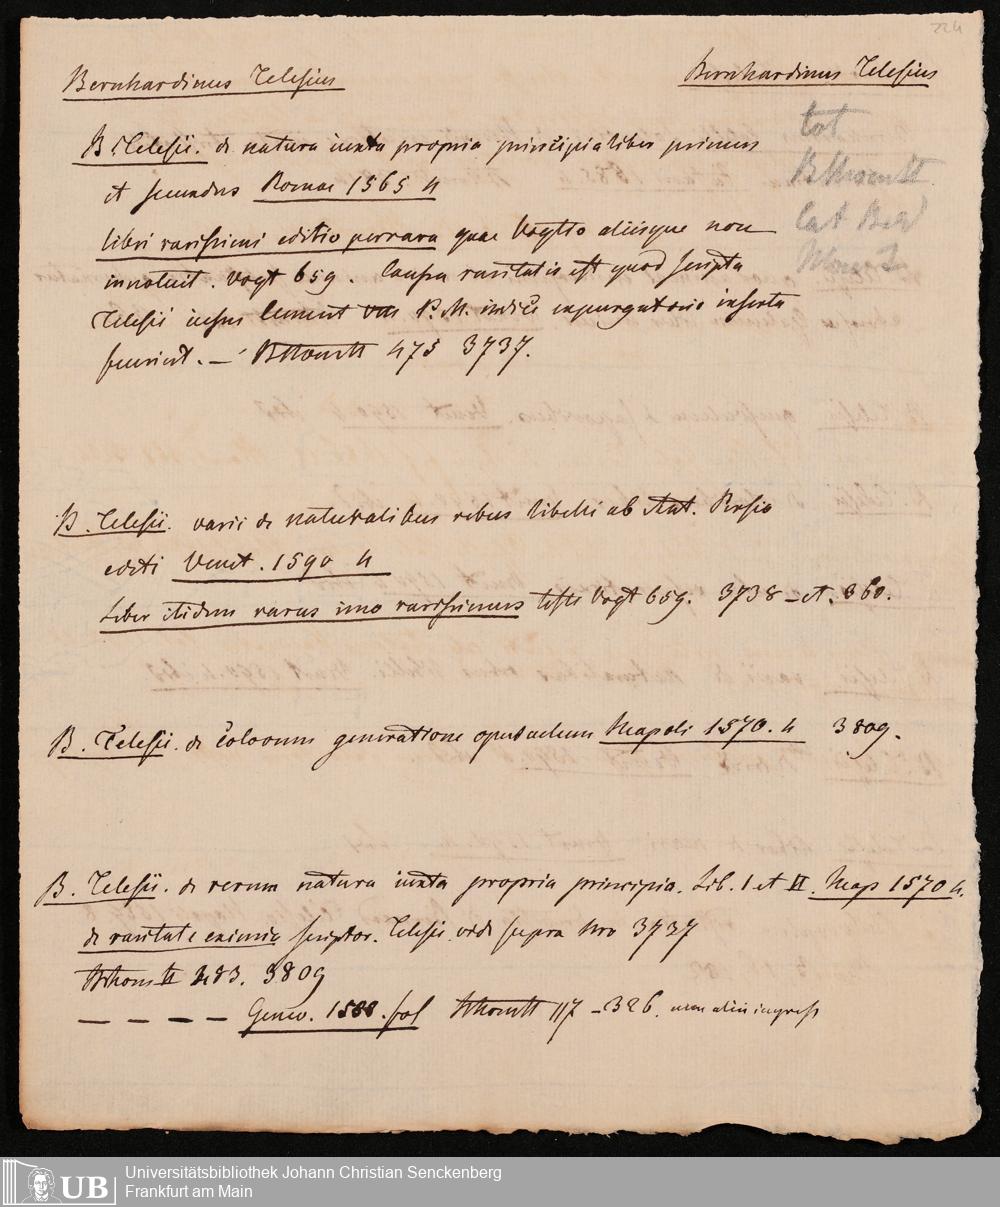 224
Bernhardinus Telesius
Bernhardinus Telesius
B. Telesii. de natura iuxta propria principia liber primus
et secundus Romae 1565 4
libri rarissimi editio perrara quae Vogtio aliisque non
innotuit. Vogt 659. Caussa raritatis est quod scripta
Telesii iussu Clement VIII P. M. indici expurgatorio inserta
fuerint. — 475 3737.
tot
Cat
B. Telesii. varii de naturalibus rebus libelli ab Ant. Persio
editi Venet. 1590 4
Liber itidem rarus imo rarissimus teste Vogt 659. 3738 – et. 360.
B. Telesii. de Colorum generatione opusculum Neapoli 1570. 4 3809.
B. Telesii. de rerum natura iuxta propria principia. Lib. I et II. Neap 1570 4.
de raritate eximia scriptor. Telesii. vide supra Nro 3737
II 483. 3809
— — — — Genev. 1588. fol 117 – 326. cum aliis ingress
UB Universitätsbibliothek Johann Christian Senckenberg
Frankfurt am Main